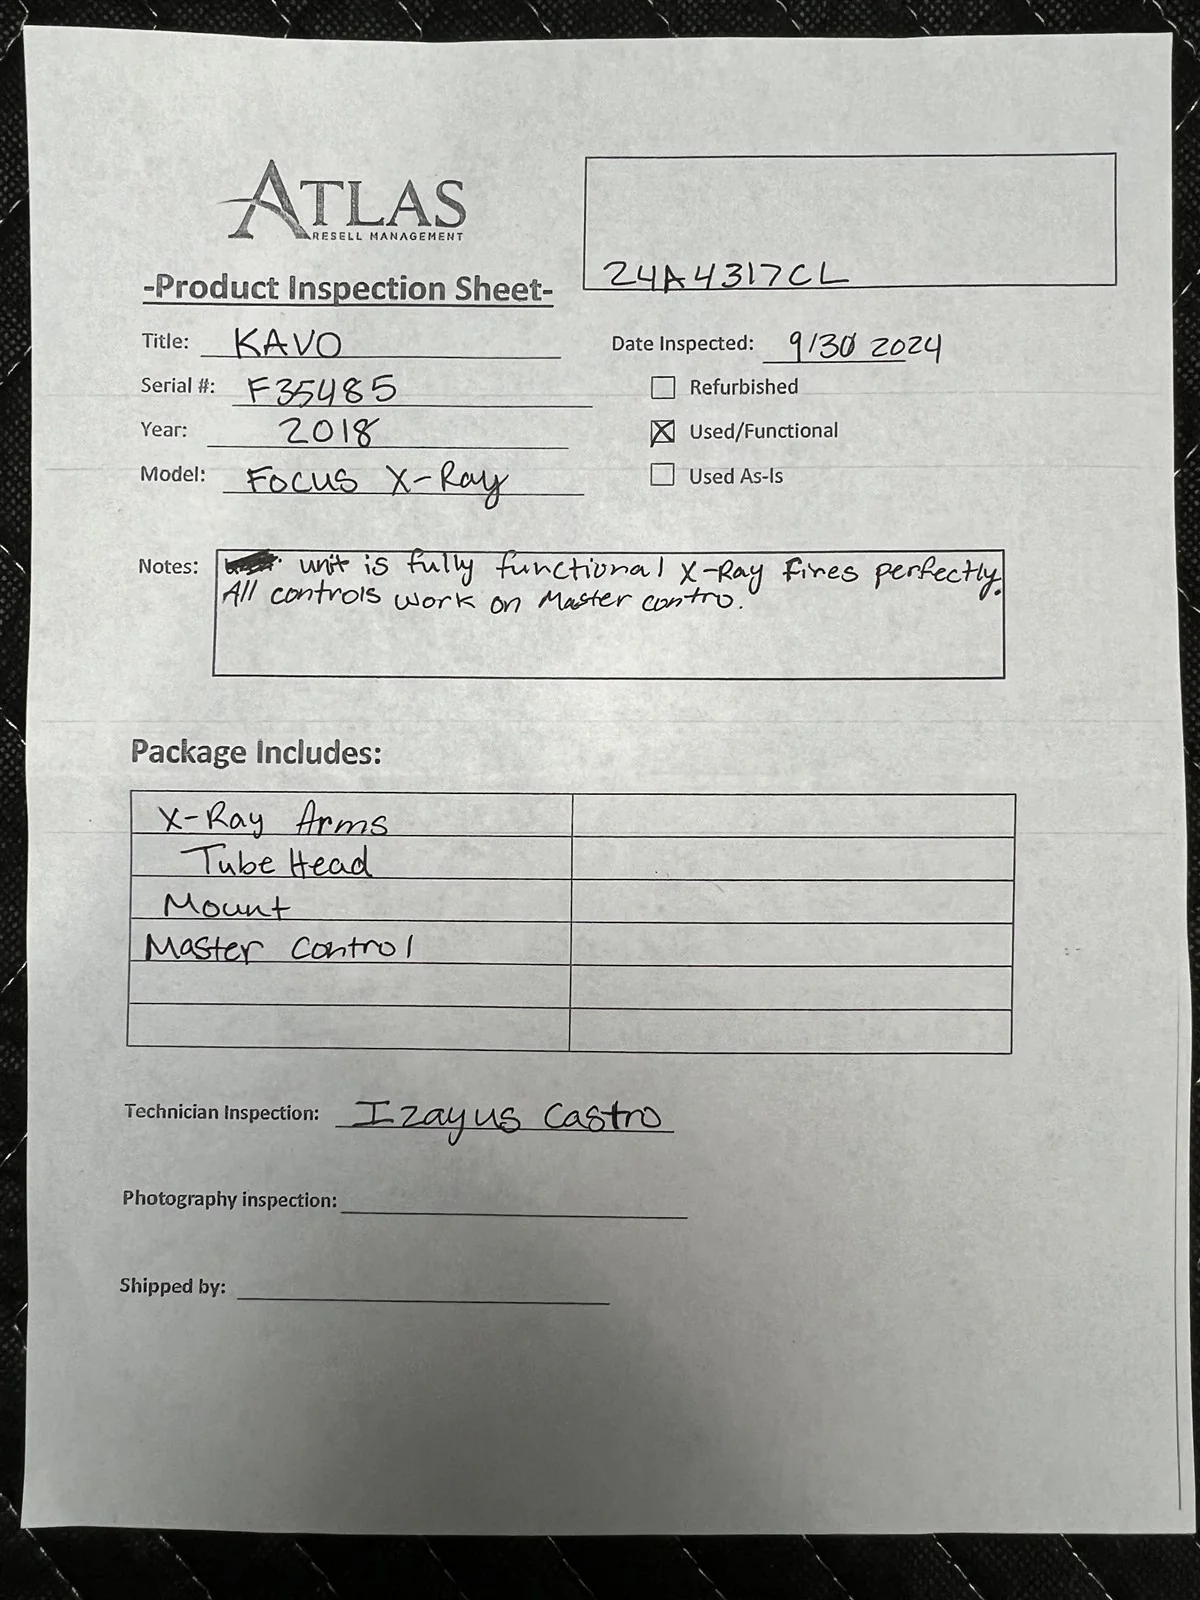 ATLAS
RESELL MANAGEMENT
24A4317CL
-Product Inspection Sheet-
Title: KAVO
Date Inspected: 9/30 2024
Serial #: F35485
Refurbished
Year: 2018
Used/Functional
Model: Focus X-Ray
Used As-Is
Notes: unit is fully functional X-Ray fires perfectly.
All controls work on Master contro.
Package Includes:
X-Ray Arms
Tube Head
Mount
Master Control
Technician Inspection: Izayus Castro
Photography inspection:
Shipped by: